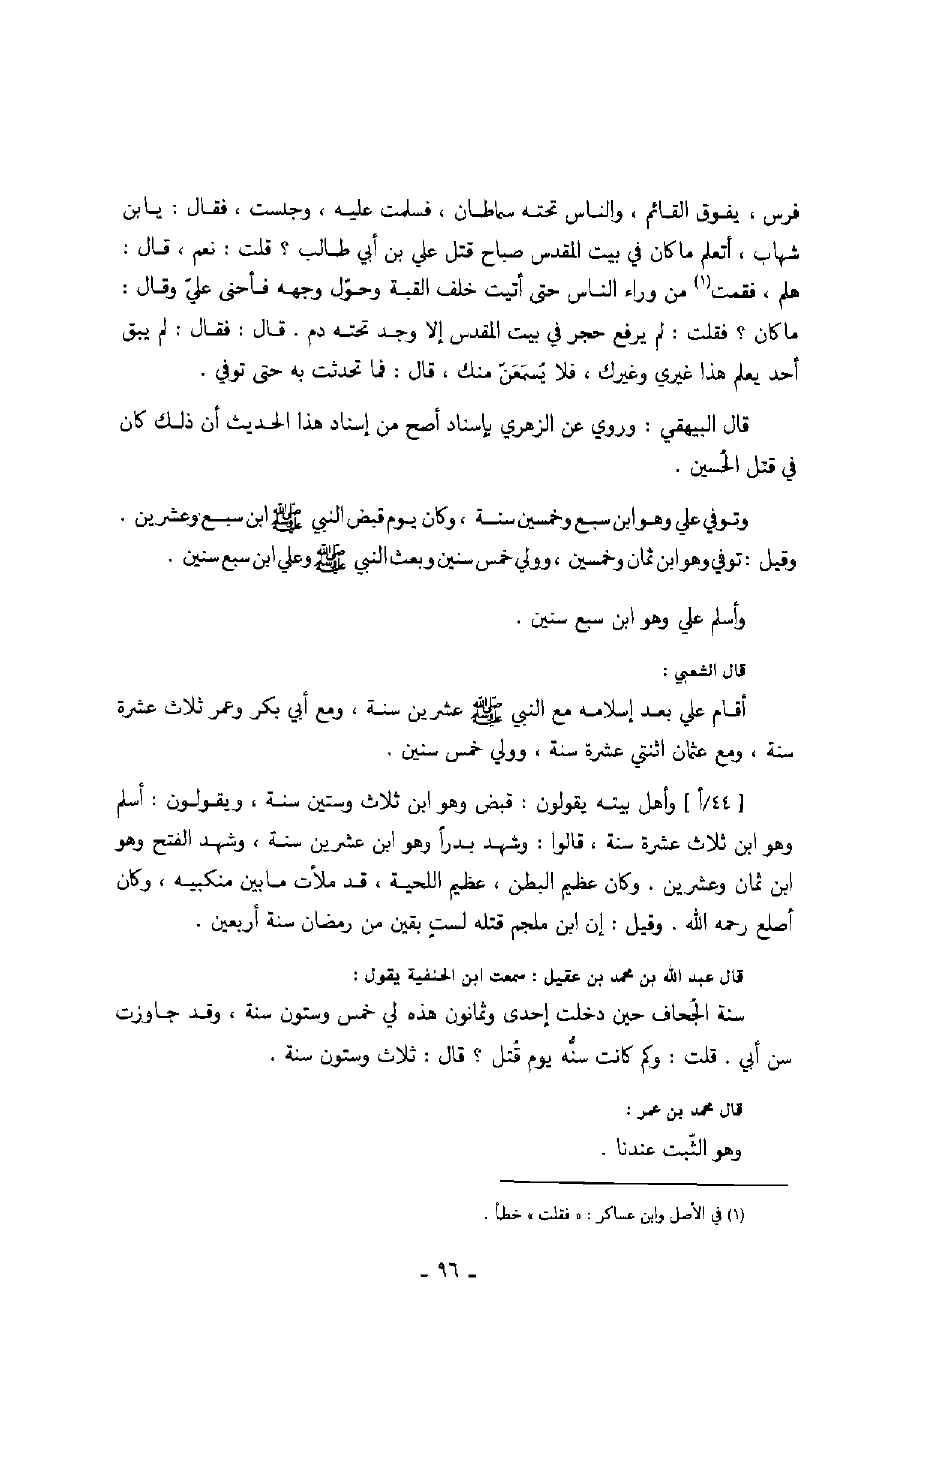 فرس ، يفوق القائم ، والناس تحته سماطان ، فسلمت عليه ، وجلست ، فقال : يابن
شهاب ، أتعلم ماكان في بيت المقدس صباح قتل علي بن أبي طالب ؟ قلت : نعم ، قال :
هلم ، فقمت(١) من وراء الناس حتى أتيت خلف القبة وحوّل وجهه فأحنى عليّ وقال :
ماكان ؟ فقلت : لم يرفع حجر في بيت المقدس إلا وجد تحته دم . قال : فقال : لم يبق
أحد يعلم هذا غيري وغيرك ، فلا يُسمَعَنّ منك ، قال : فما تحدثت به حتى توفي .
قال البيهقي : وروي عن الزهري بإسناد أصح من إسناد هذا الحديث أن ذلك كان
في قتل الحُسين .
وتوفي علي وهو ابن سبع وخمسين سنة ، وكان يوم قبض النبي ﷺ ابن سبع وعشرين .
وقيل : توفي وهو ابن ثمان وخمسين ، وولي خمس سنين وبعث النبي ﷺ وعلي ابن سبع سنين .
وأسلم علي وهو ابن سبع سنين .
قال الشعبي :
أقام علي بعد إسلامه مع النبي ﷺ عشرين سنة ، ومع أبي بكر وعمر ثلاث عشرة
سنة ، ومع عثمان اثنتي عشرة سنة ، وولي خمس سنين .
[ ٤٤/أ ] وأهل بيته يقولون : قبض وهو ابن ثلاث وستين سنة ، ويقولون : أسلم
وهو ابن ثلاث عشرة سنة ، قالوا : وشهد بدراً وهو ابن عشرين سنة ، وشهد الفتح وهو
ابن ثمان وعشرين . وكان عظيم البطن ، عظيم اللحية ، قد ملأت مابين منكبيه ، وكان
أصلع رحمه الله . وقيل : إن ابن ملجم قتله لستٍ بقين من رمضان سنة أربعين .
قال عبد الله بن محمد بن عقيل : سمعت ابن الحنفية يقول :
سنة الجُحاف حين دخلت إحدى وثمانون هذه لي خمس وستون سنة ، وقد جاوزت
سن أبي . قلت : وكم كانت سنُّه يوم قُتل ؟ قال : ثلاث وستون سنة .
قال محمد بن عمر :
وهو الثَّبت عندنا .
(١) في الأصل وابن عساكر : « فقلت » خطأ .
- ٩٦ -